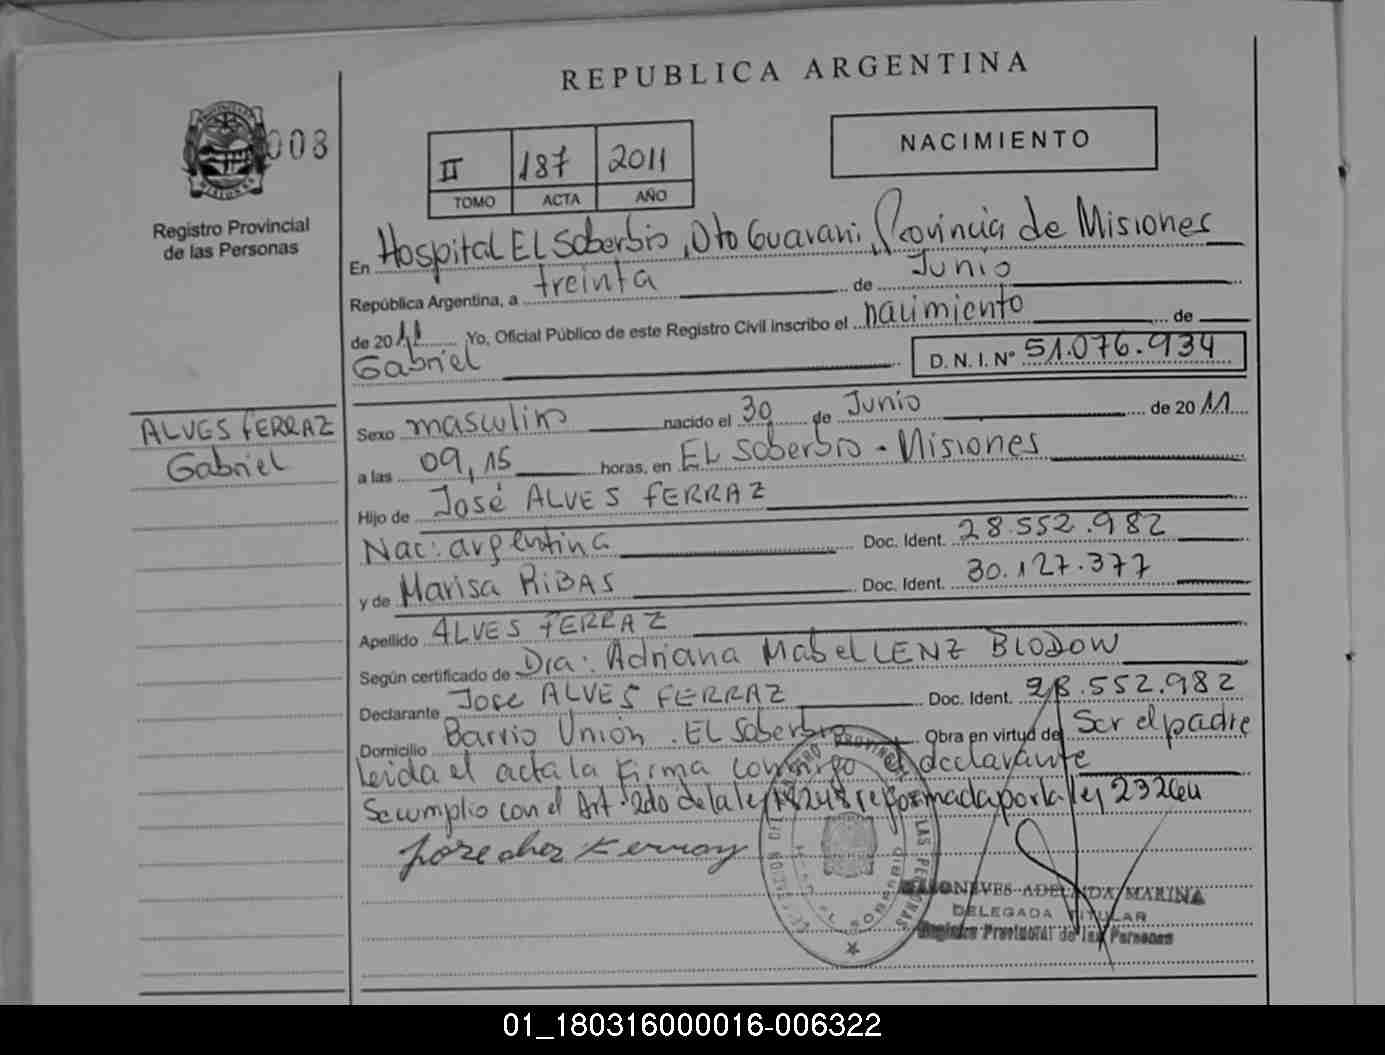 REPUBLICA ARGENTINA
008
Registro Provincial
de las Personas
II 187 2011
TOMO ACTA AÑO
NACIMIENTO
En Hospital EL Soberbio, Dto Guarani, Provincia de Misiones
República Argentina, a treinta de Junio
de 2011 Yo, Oficial Público de este Registro Civil inscribo el nacimiento de
Gabriel D. N. I. Nº 51.076.934
ALVES FERRAZ
Gabriel
Sexo masculino nacido el 30 de Junio de 2011
a las 09,15 horas, en EL Soberbio - Misiones
Hijo de José ALVES FERRAZ
Nac: argentina Doc. Ident. 28.552.982
y de Marisa RIBAS Doc. Ident. 30.127.377
Apellido ALVES FERRAZ
Según certificado de Dra: Adriana Mabel LENZ BLODOW
Declarante Jose ALVES FERRAZ Doc. Ident. 28.552.982
Domicilio Barrio Unión. EL Soberbio Obra en virtud de Ser el padre
Leida el acta la firma conmigo el declarante
Se cumplio con el Art. 2do de la ley 18248 reformada por la ley 23264
ADELINDA MARINA
DELEGADA TITULAR
Registro Provincial de las Personas
01_180316000016-006322